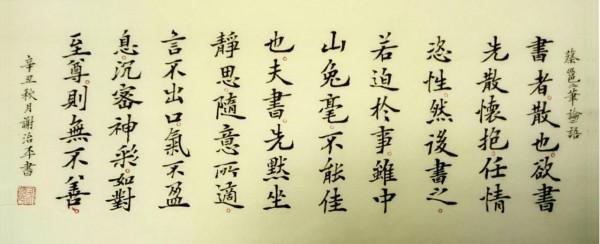 蔡邕筆論語
書者散也欲書
先散懷抱任情
恣性然後書之
若迫於事雖中
山兔毫不能佳
也夫書先默坐
靜思隨意所適
言不出口氣不盈
息沉審神彩如對
至尊則無不善
辛丑秋月謝治平書